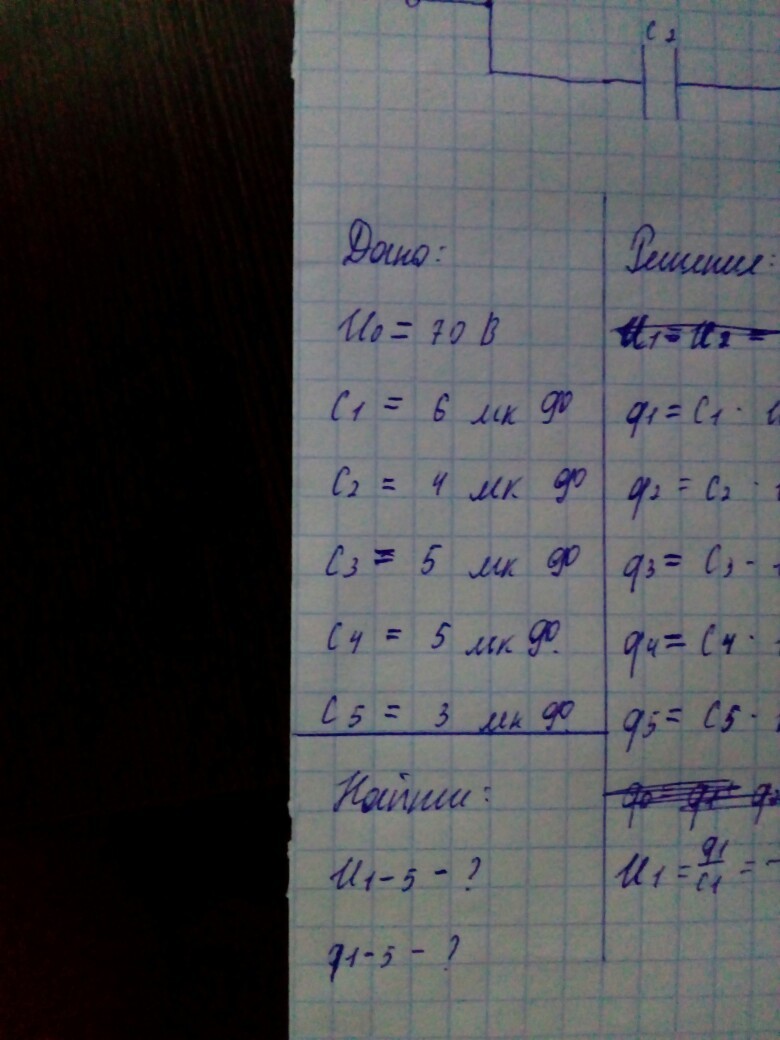 C2
Дано:
U0 = 70 В
C1 = 6 мк Ф
C2 = 4 мк Ф
C3 = 5 мк Ф
C4 = 5 мк Ф.
C5 = 3 мк Ф.
Найти:
U1-5 - ?
q1-5 - ?
Решение:
U1 = U2 =
q1 = C1 ·
q2 = C2 ·
q3 = C3 ·
q4 = C4 ·
q5 = C5 ·
U1 = q1/C1 =